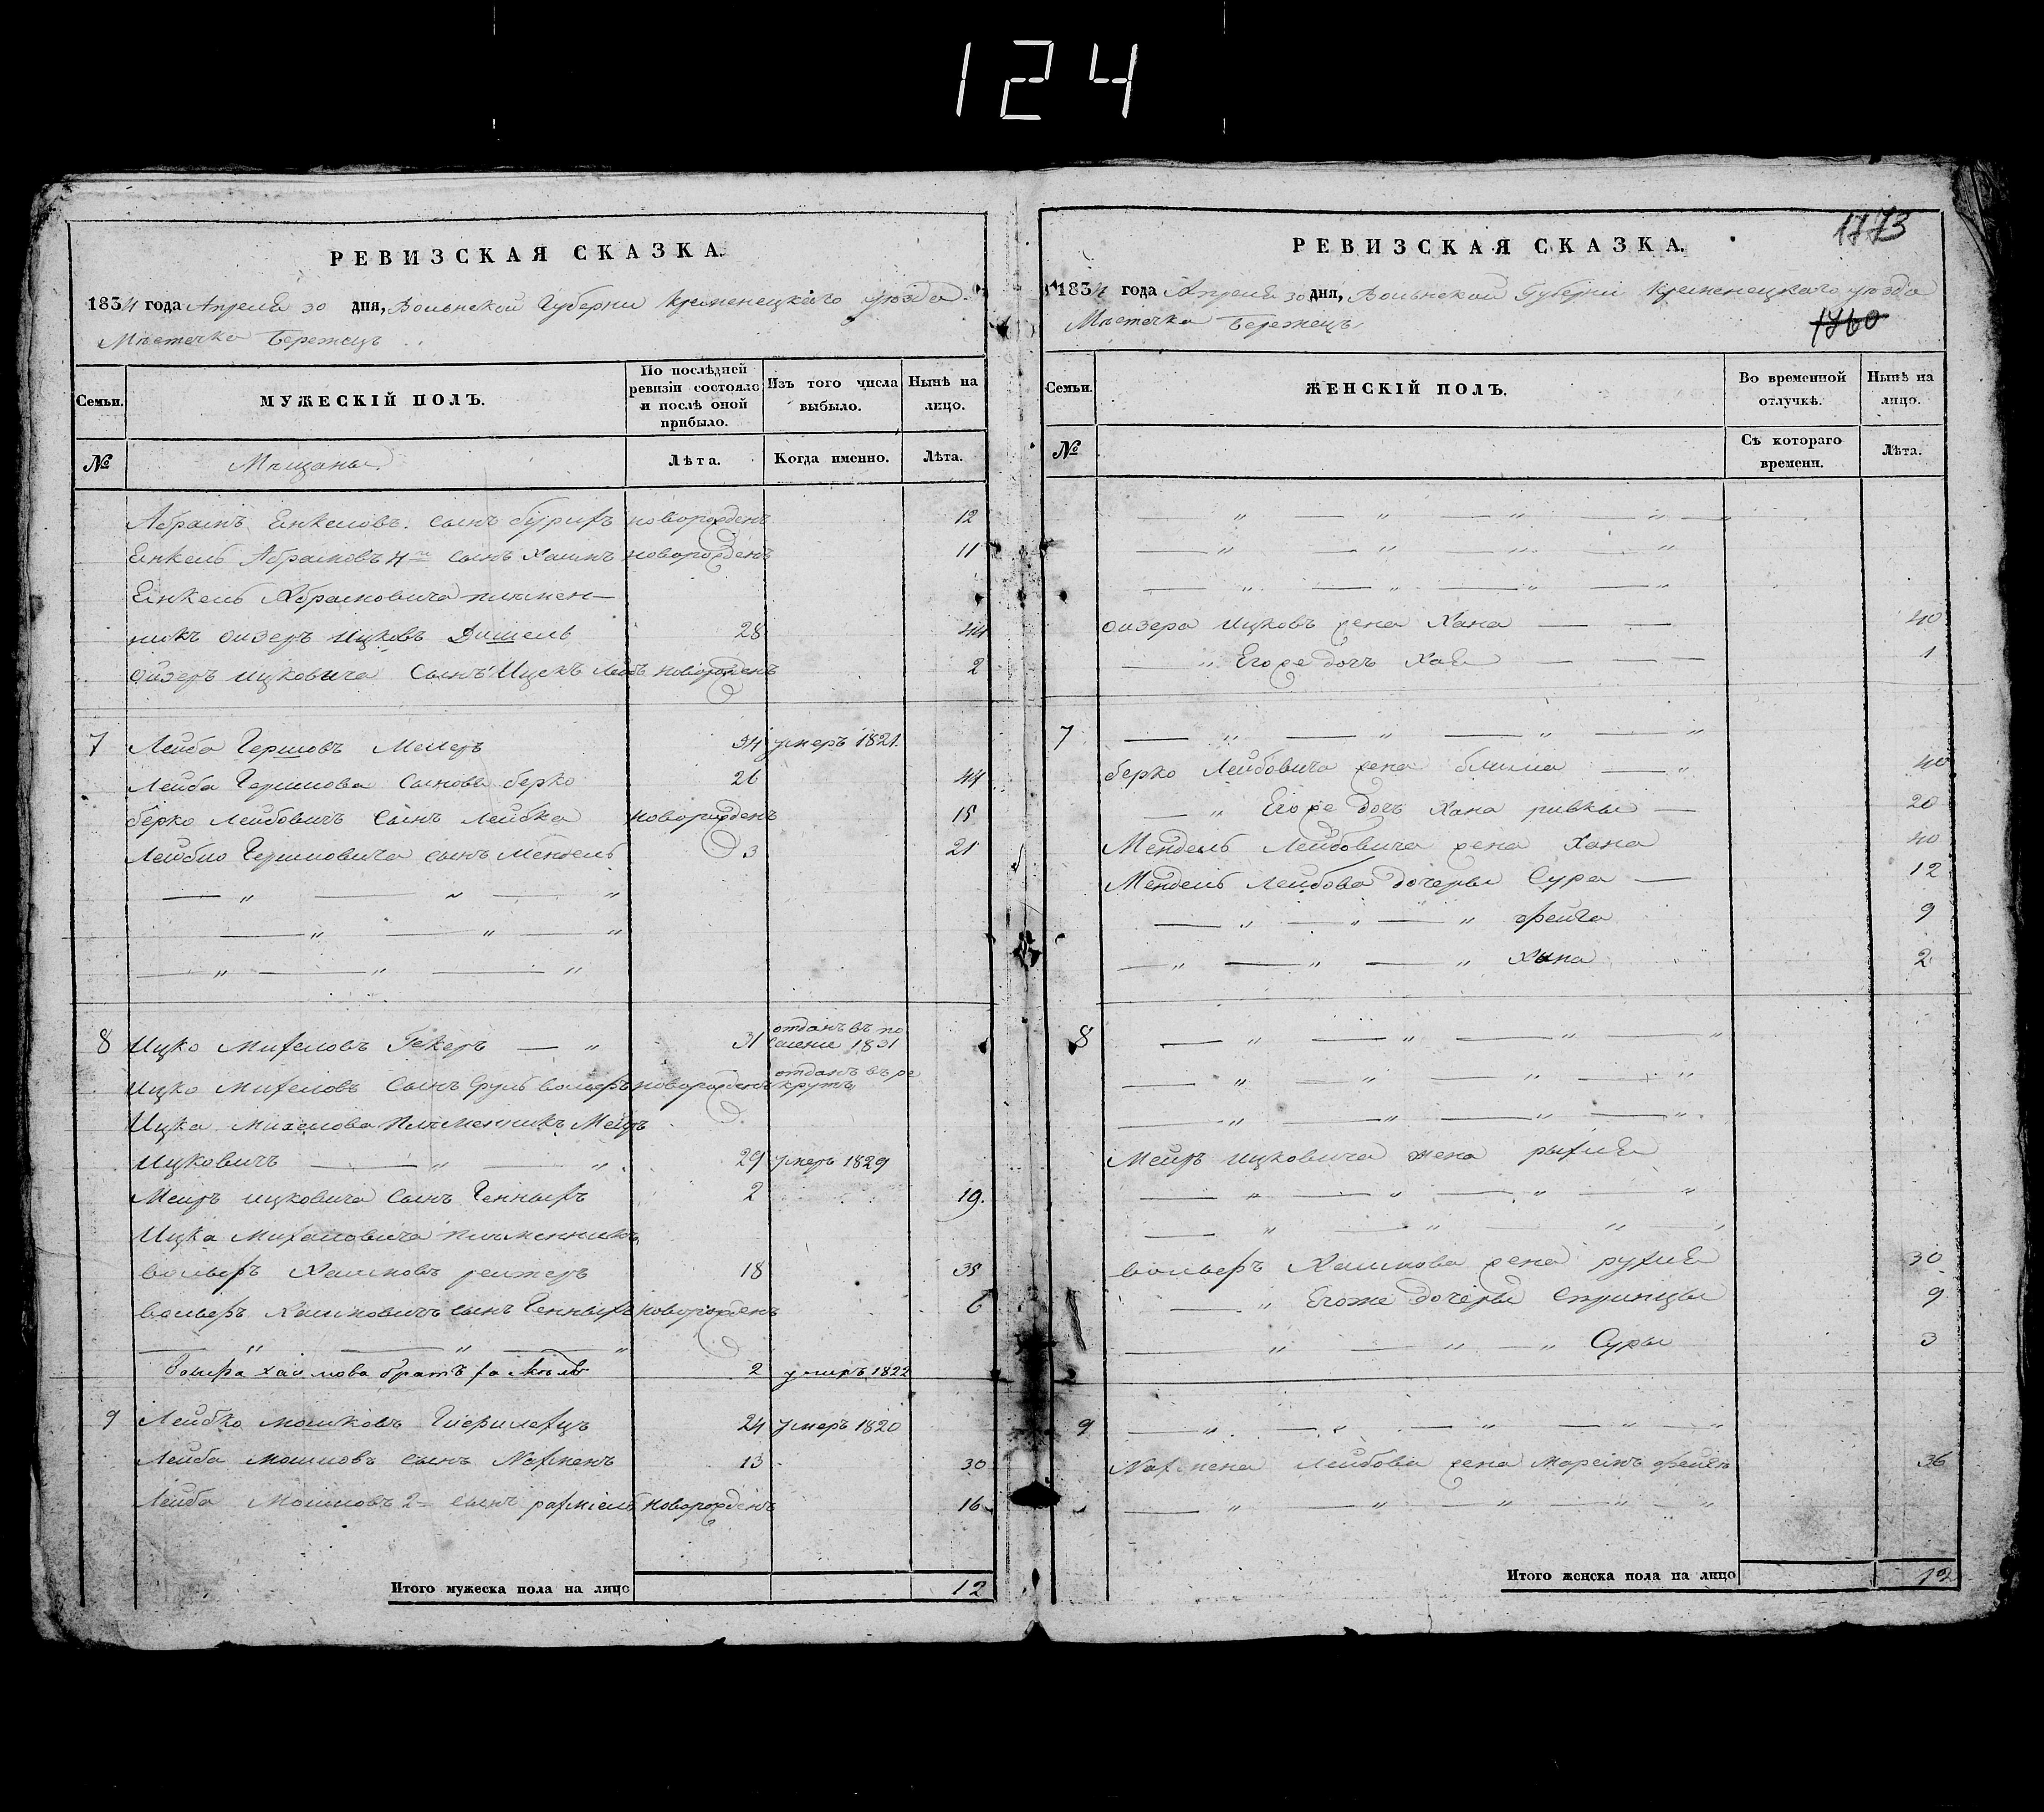 124
РЕВИЗСКАЯ СКАЗКА.
1834 года Апреля 30 дня, Волынской Губерни Кременецкаго уѣзда
Мѣстечка Бережецъ
Семьи.
МУЖЕСКІЙ ПОЛЪ.
По послѣдней ревизіи состояло и послѣ оной прибыло.
Изъ того числа выбыло.
Нынѣ на лицо.
№
Мещаны
Лѣта.
Когда именно.
Лѣта.
Абрамъ Енкеловъ сынъ новорожденъ 12
Енкель Абрамовъ сынъ Хаимъ новорожденъ 11
Енкель Абрамовича племен—
никъ Оизеръ Ицковъ Дишель 28 44
Ойзеръ Ицковича Сынъ Ицекъ Леибъ новорожденъ 2
7 Леиба Гершовъ Мелеръ 34 умеръ 1821.
Леиба Гершова Сыновья берко 26 44
берко Леибовичъ Сынъ Лейбка новорожденъ 15
Гершовича сынъ Мендель 3 21
8 Ицко Михелевъ 31 отданъ въ по
селение 1831
Ицко Михеловъ Сынъ Сруль вольфъ новорожденъ отданъ въ ре
круты
Ицка Михелова Племенникъ Меиръ
Ицковичъ 29 умеръ 1829
Меиръ ицковича сынъ Генныхъ 2 19.
Ицка Михаловича племенникъ
вольфъ Хаимовъ 18 35
вольфъ Хаимовичъ сынъ Генныхъ новорожденъ 6
Волфа хаимова братъ 2 умиръ 1822
9 Лейбко Мошковъ 24 умеръ 1820
Леиба Мошковъ Сынъ Нахменъ 13 30
Леиба Мошковъ 2 сынъ рахмiель новорожденъ 16
Итого мужеска пола на лицо 12
1773
РЕВИЗСКАЯ СКАЗКА.
1834 года Апреля 30 дня, Волынской Губерніи Кременецкаго уѣзда
Мѣстечка Бережецъ
1760
Семьи.
ЖЕНСКІЙ ПОЛЪ.
Во временной отлучкѣ.
Нынѣ на лицо.
№
Съ котораго времени.
Лѣта.
Оизера Ицковъ жена Хана 40
Егоже дочъ Хая 1
7
берко Леибовича жена блима 40
Егоже дочъ Хана ривкы 20
Мендель Леибовича жена Хана 40
Мендель Леибова дочеры Сура 12
Фейга 9
Хана 2
8
Меиръ ицковича жена рыхля
вольфъ Хаимова жена рухля 30
Егоже дочеры Спринцы 9
Суры 3
9
Нахмена Леибова жена 36
Итого женска пола на лицо 12